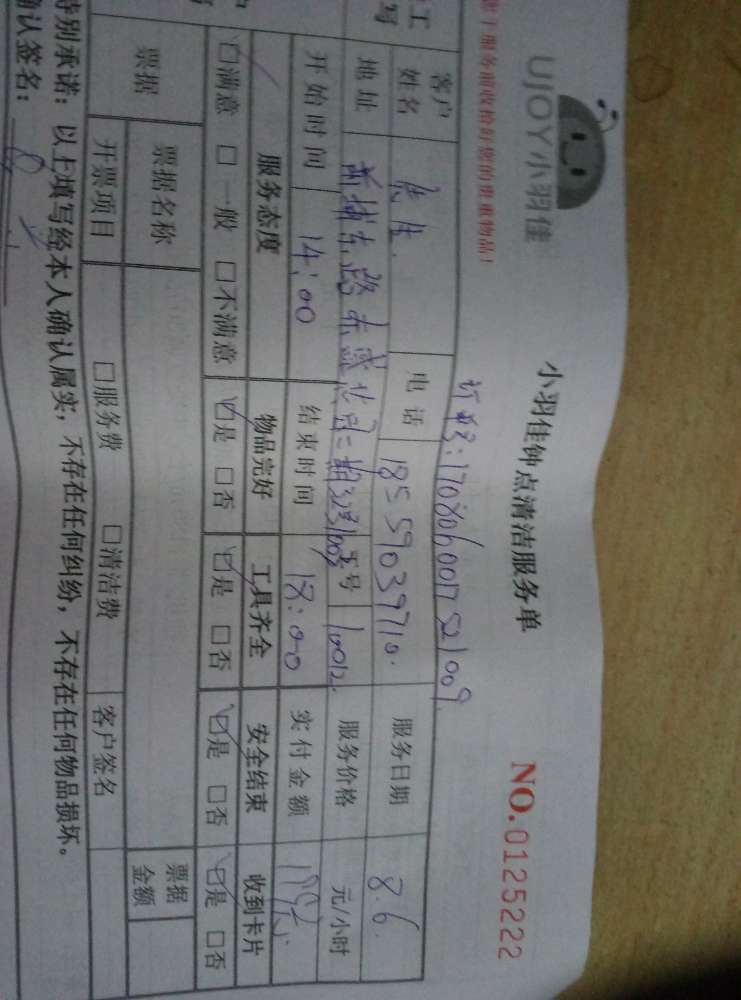 UJOY小羽佳
小羽佳钟点清洁服务单
NO.0125222
您于服务前收拾好您的贵重物品!
订单号:1708060017521009
客户姓名 电话 18559039710. 服务日期 8.6.
地址 工号 1002. 服务价格 元/小时
开始时间 14:00 结束时间 18:00 实付金额
服务态度 物品完好 工具齐全 安全结束 收到卡片
☑满意 □一般 □不满意 ☑是 □否 ☑是 □否 ☑是 □否 ☑是 □否
票据 票据名称 票据金额
开票项目 □服务费 □清洁费 客户签名
特别承诺:以上填写经本人确认属实,不存在任何纠纷,不存在任何物品损坏。
确认签名: